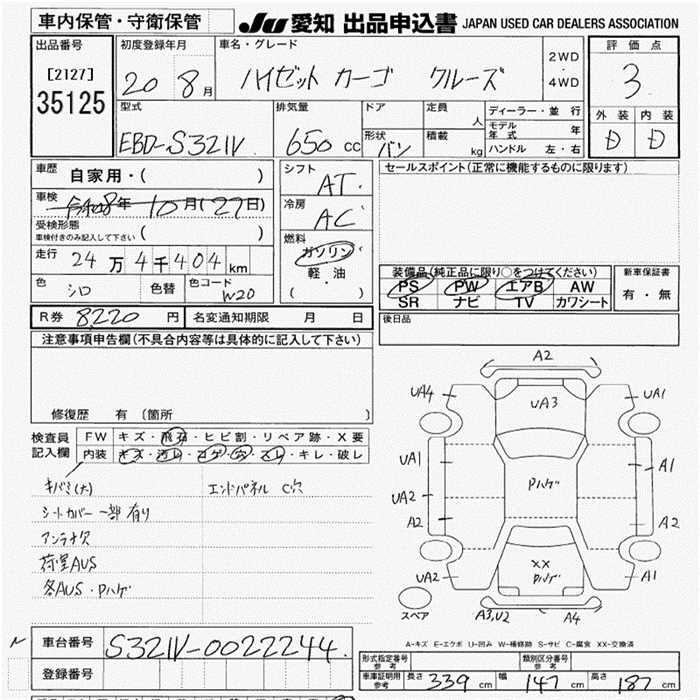 車内保管・守衛保管
JU 愛知 出品申込書 JAPAN USED CAR DEALERS ASSOCIATION
出品番号
[2127]
35125
初度登録年月
20 8月
車名・グレード
ハイゼット カーゴ クルーズ
2WD
・
4WD
評価点
3
外装 内装
D D
型式
EBD-S321V
排気量
650 cc
ドア
形状
バン
定員
人
積載
kg
ディーラー・並行
モデル年式 年
ハンドル 左・右
車歴
自家用・( )
車検
令和8年 10月(27日)
受検形態
車検付きのみ記入して下さい ( )
走行
24万4千404km
色
シロ
色替
色コード
W20
シフト
AT
冷房
AC
燃料
ガソリン
軽・油
( )
セールスポイント(正常に機能するものに限ります)
装備品(純正品に限り○をつけてください)
PS PW エアB AW
SR ナビ TV カワシート
新車保証書
有・無
R券 8220円
名変通知期限 月 日
後日品
注意事項申告欄(不具合内容等は具体的に記入して下さい)
修復歴 有 (箇所 )
検査員
記入欄
FW キズ・飛石・ヒビ割・リペア跡・X要
内装 キズ・汚レ・コゲ・穴・スレ・キレ・破レ
キバミ(大)
エンドパネル C穴
シートカバー 一部有り
アンテナ欠
荷室AUS
各AUS・Pハゲ
A2
UA4
UA3
UA1
UA1
A1
Pハゲ
UA2
A2
A2
XX
Pハゲ
UA2
A1
スペア
A3,U2
A4
A-キズ E-エクボ U-凹み W-補修跡 S-サビ C-腐食 XX-交換済
N
車台番号 S321V-0022244
登録番号
形式指定番号
参考
類別区分番号
参考
車庫証明用
参考
長さ 339 cm 幅 147 cm 高さ 187 cm